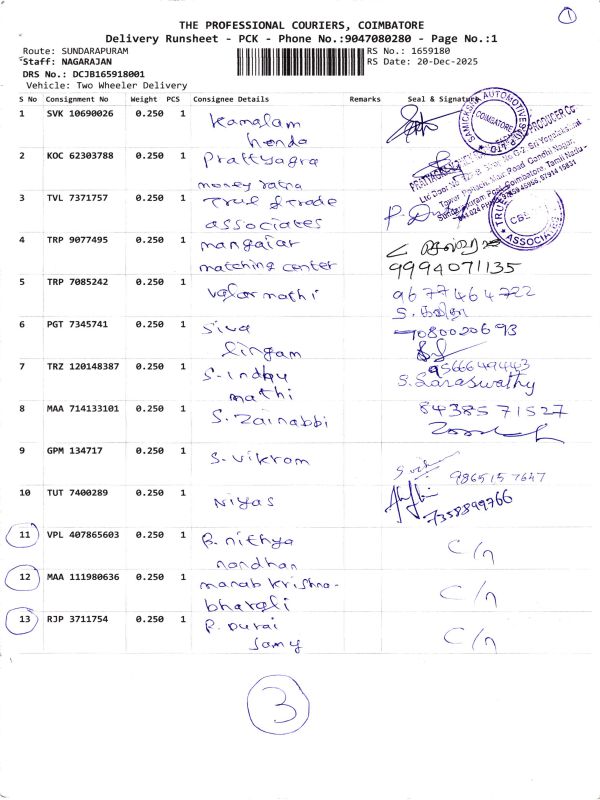 1
THE PROFESSIONAL COURIERS, COIMBATORE
Delivery Runsheet - PCK - Phone No.:9047080280 - Page No.:1
Route: SUNDARAPURAM
RS No.: 1659180
Staff: NAGARAJAN
RS Date: 20-Dec-2025
DRS No.: DCJB165918001
Vehicle: Two Wheeler Delivery
S No Consignment No Weight PCS Consignee Details Remarks Seal & Signature
1 SVK 10690026 0.250 1 Kamalam
honda
2 KOC 62303788 0.250 1 Prattyagra
money ratna
3 TVL 7371757 0.250 1 True & trade
associates
4 TRP 9077495 0.250 1 mangaiar
matching center 9994071135
5 TRP 7085242 0.250 1 valar mathi 9677464722
6 PGT 7345741 0.250 1 Siva 7080020693
lingam
7 TRZ 120148387 0.250 1 S. Indhu 9566649443
mathi S. Saraswathy
8 MAA 714133101 0.250 1 S. Zainabbi 8438571527
9 GPM 134717 0.250 1 S. Vikrom 9865157647
10 TUT 7400289 0.250 1 Niyas 7358899766
11 VPL 407865603 0.250 1 B. nithya C/n
nandhan
12 MAA 111980636 0.250 1 manab krishna- C/n
bharali
13 RJP 3711754 0.250 1 P. Durai C/n
Samy
3